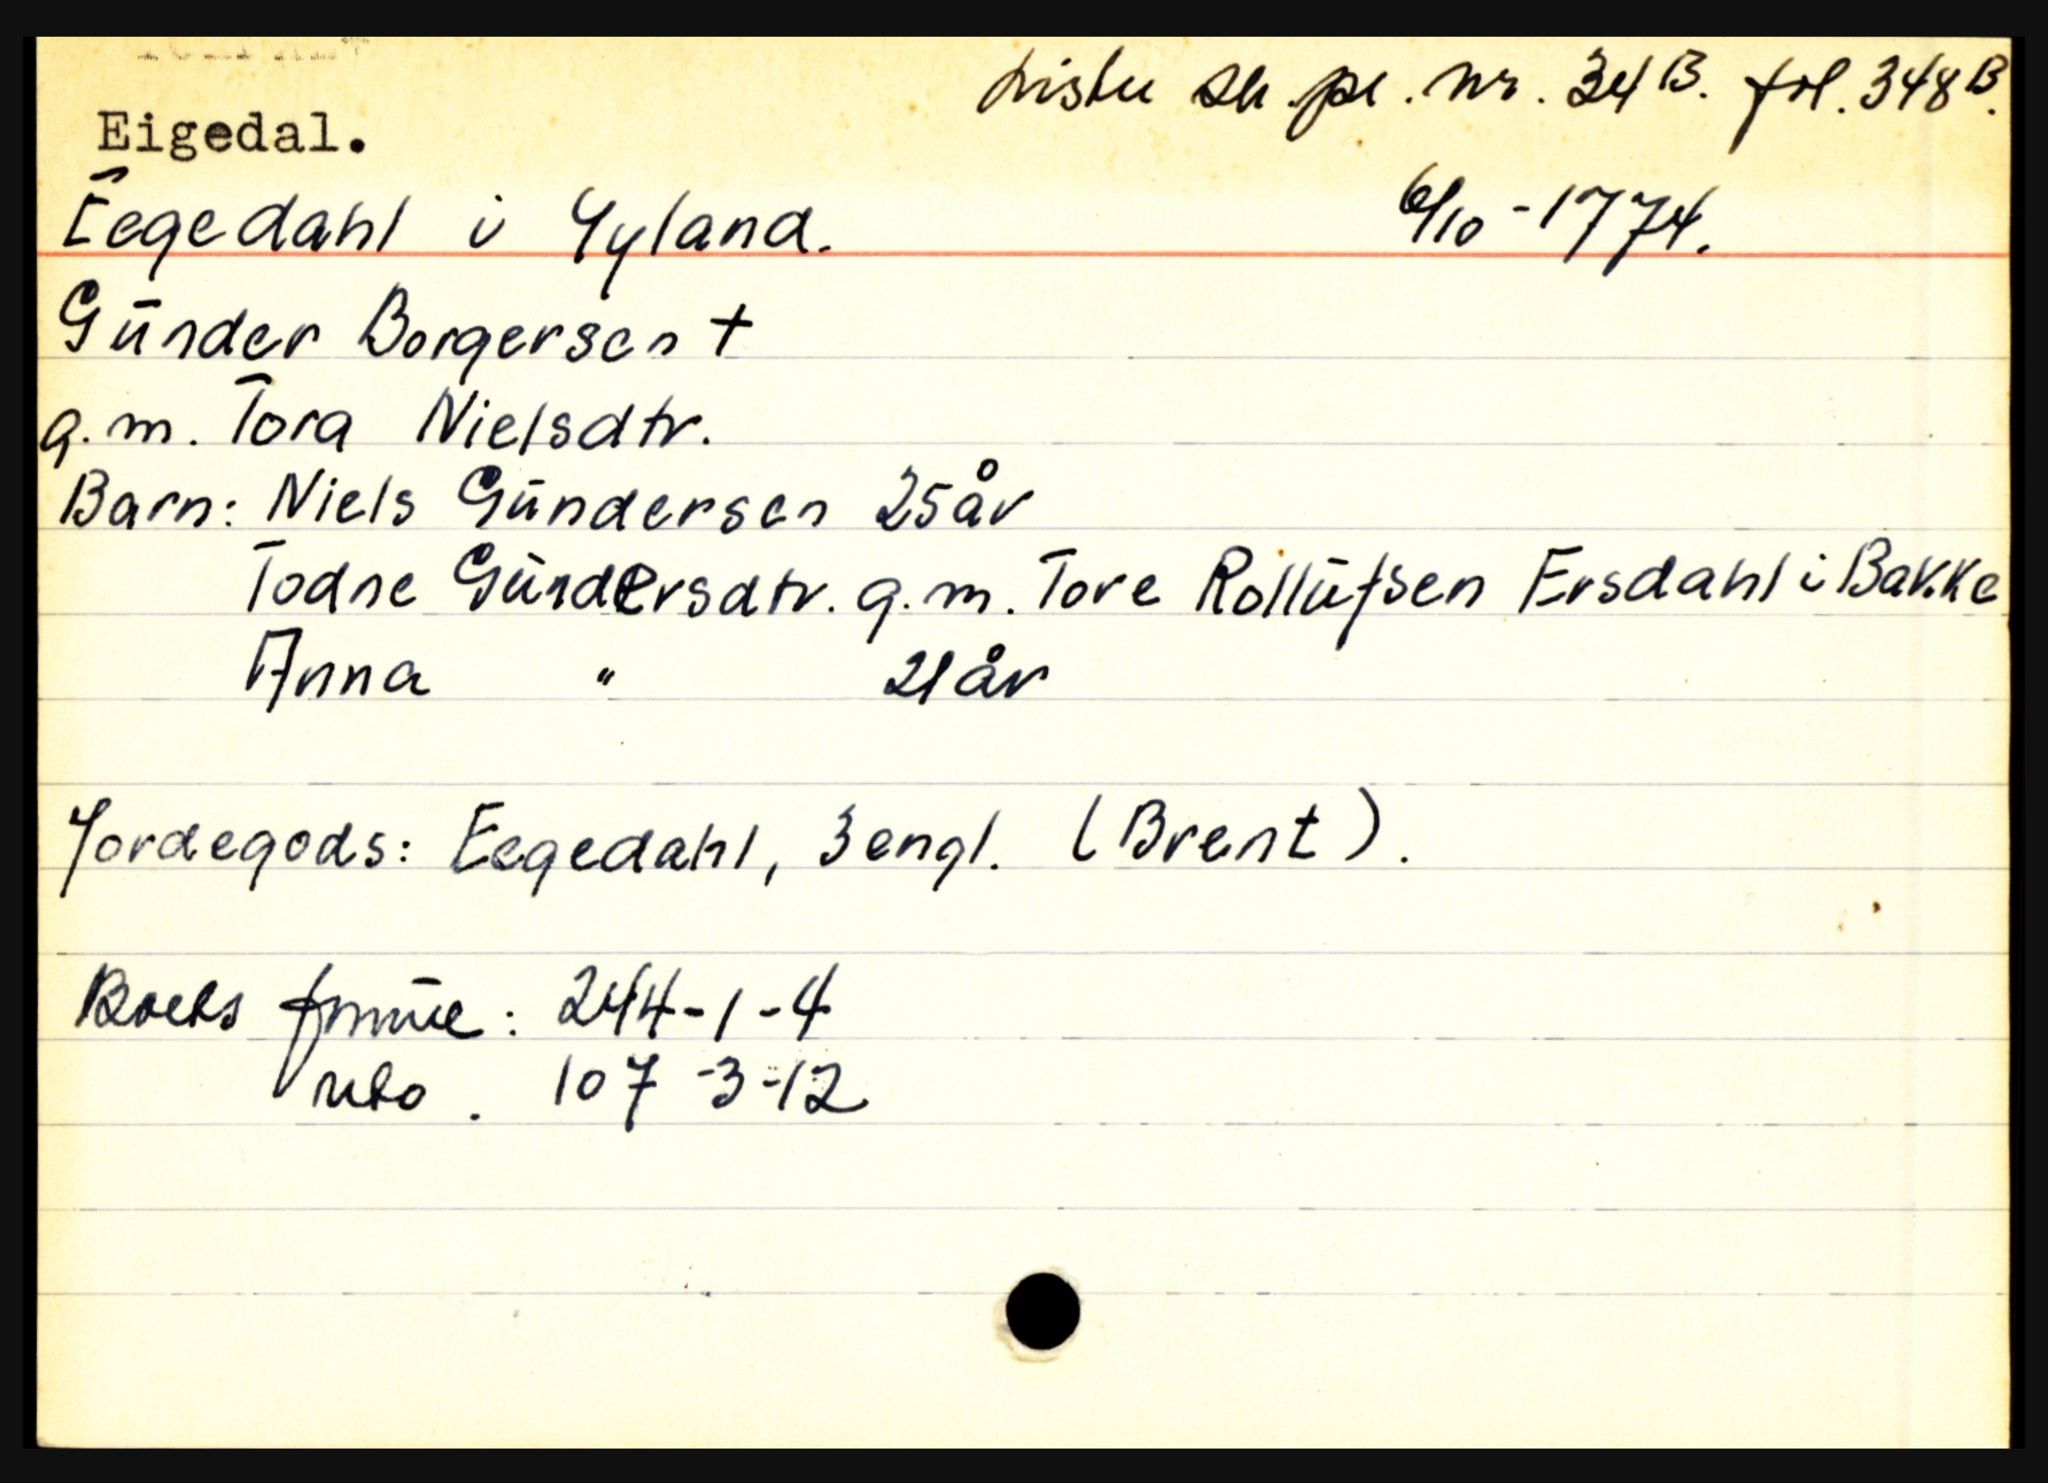 Lister sk. pr. nr. 34 B. fol. 348 B.
Eigedal.
Eegedahl i Gyland. 6/10 - 1774.
Gūnder Borgersen †
g. m. Tora Nielsdtr.
Barn: Niels Gūndersen 25 år
Todne Gūndersdtr. g. m. Tore Rollūfsen Ersdahl i Bakke
Anna " 21 år
Jordegods: Eegedahl, 3 engl. (Brent).
Boets formūe: 244-1-4
Netto. 107-3-12